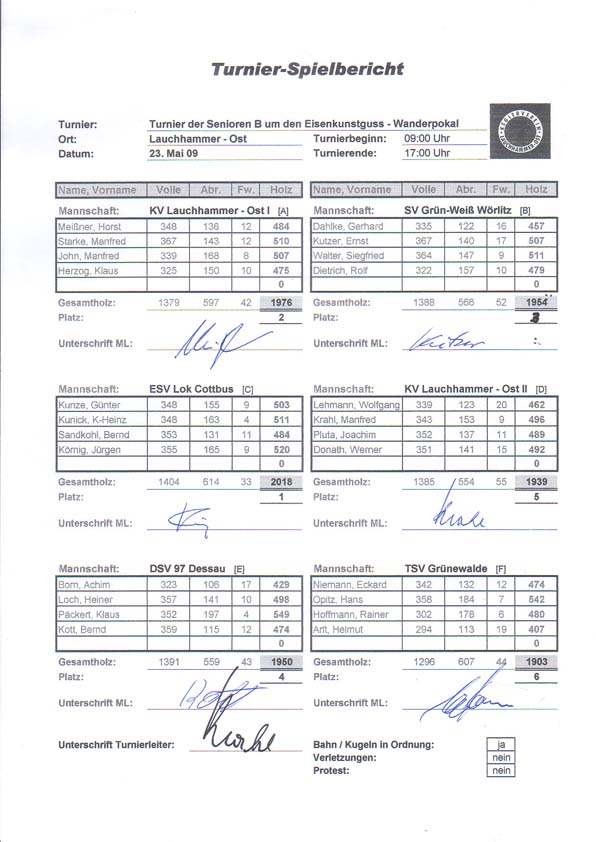 Turnier-Spielbericht
Turnier: Turnier der Senioren B um den Eisenkunstguss - Wanderpokal
Ort: Lauchhammer - Ost Turnierbeginn: 09:00 Uhr
Datum: 23. Mai 09 Turnierende: 17:00 Uhr
Name, Vorname Volle Abr. Fw. Holz Name, Vorname Volle Abr. Fw. Holz
Mannschaft: KV Lauchhammer - Ost I [A] Mannschaft: SV Grün-Weiß Wörlitz [B]
Meißner, Horst 348 136 12 484 Dahlke, Gerhard 335 122 16 457
Starke, Manfred 367 143 12 510 Kutzer, Ernst 367 140 17 507
John, Manfred 339 168 8 507 Walter, Siegfried 364 147 9 511
Herzog, Klaus 325 150 10 475 Dietrich, Rolf 322 157 10 479
0 0
Gesamtholz: 1379 597 42 1976 Gesamtholz: 1388 566 52 1954
Platz: 2 Platz: 3
Unterschrift ML: Unterschrift ML: Kutzer
Mannschaft: ESV Lok Cottbus [C] Mannschaft: KV Lauchhammer - Ost II [D]
Kunze, Günter 348 155 9 503 Lehmann, Wolfgang 339 123 20 462
Kunick, K-Heinz 348 163 4 511 Krahl, Manfred 343 153 9 496
Sandkohl, Bernd 353 131 11 484 Pluta, Joachim 352 137 11 489
Körnig, Jürgen 355 165 9 520 Donath, Werner 351 141 15 492
0 0
Gesamtholz: 1404 614 33 2018 Gesamtholz: 1385 554 55 1939
Platz: 1 Platz: 5
Unterschrift ML: Unterschrift ML:
Mannschaft: DSV 97 Dessau [E] Mannschaft: TSV Grünewalde [F]
Born, Achim 323 106 17 429 Niemann, Eckard 342 132 12 474
Loch, Heiner 357 141 10 498 Opitz, Hans 358 184 7 542
Päckert, Klaus 352 197 4 549 Hoffmann, Rainer 302 178 6 480
Kott, Bernd 359 115 12 474 Arlt, Helmut 294 113 19 407
0 0
Gesamtholz: 1391 559 43 1950 Gesamtholz: 1296 607 44 1903
Platz: 4 Platz: 6
Unterschrift ML: Unterschrift ML:
Unterschrift Turnierleiter: Bahn / Kugeln in Ordnung: ja
Verletzungen: nein
Protest: nein